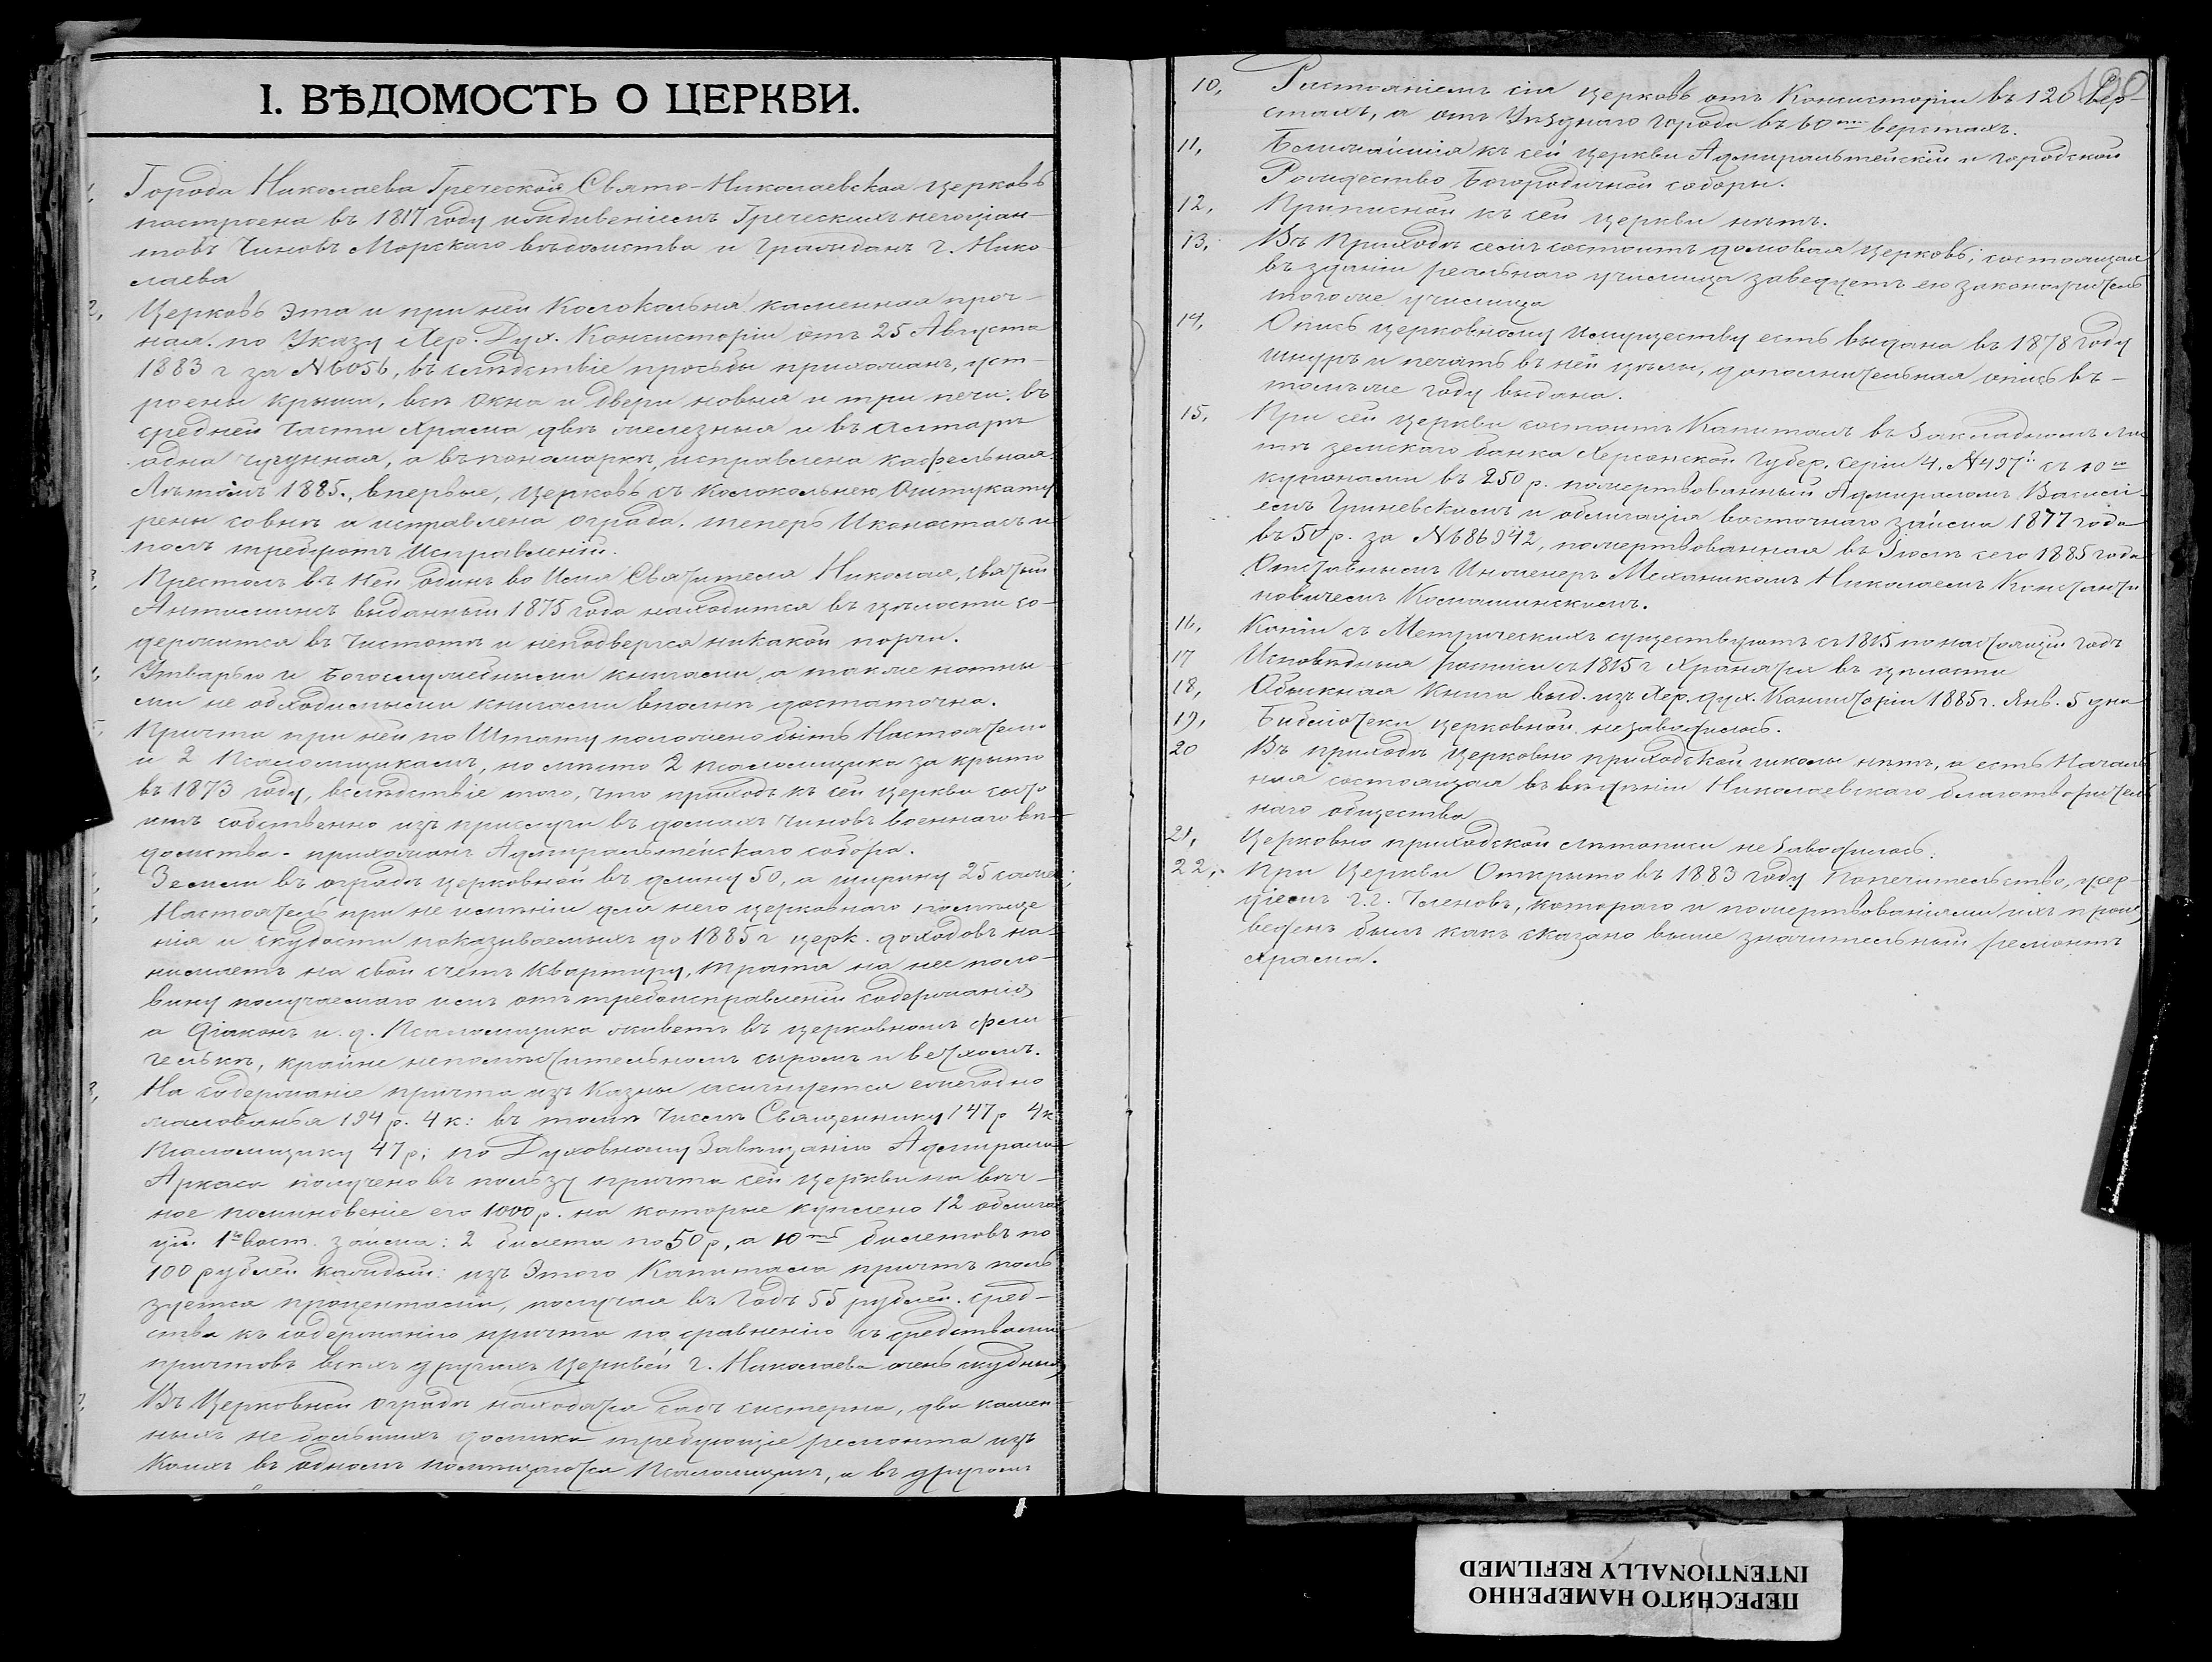 I. ВѢДОМОСТЬ О ЦЕРКВИ.
Города Николаева Греческая Свято-Николаевская церковь
построена въ 1817 году иждивеніемъ Греческихъ негоціан-
товъ Чиновъ Морскаго вѣдомства и Гражданъ г. Нико-
лаева
2, Церковь эта и при ней Колокольня каменная проч-
ная. по Указу Хер. Дух. Консисторіи отъ 25 Августа
1883 г за N6056, въ слѣдствіе просьбы прихожанъ, уст-
роены крыша, всѣ окна и двери новыя и три печи: въ
средней части Храма двѣ железныя и въ алтарѣ
одна чугунная, а въ пономаркѣ, исправлена кафельная.
Лѣтомъ 1885., впервые, церковь съ колокольнею Оштукату
рены совнѣ и исправлена ограда. теперь Иконостасъ и
полъ требуютъ Исправленія.
3, Престолъ въ ней одинъ во Имя Святителя Николая, святый
Антиминсъ выданный 1875 года находится въ цѣлости со-
держится въ чистотѣ и неподвергся никакой порчи.
Утварью и Богослужебными книгами, а также нотны-
ми не обходимыми книгами вполнѣ достаточна.
5, Причта при ней по Штату положено быть Настоятелю
и 2 Псаломщикамъ, но мѣсто 2 псаломщика за крыто
въ 1873 году, вслѣдствіе того, что приходъ къ сей церкви состо
итъ собственно изъ прислуги въ домахъ чиновъ военнаго вѣ-
домства - прихожанъ Адмиралтейскаго собора.
Земли въ оградѣ церковной въ длину 50, а ширину 25 сажен;
Настоятель при не имѣніи для него церковнаго помѣще
нія и скудости показываемыхъ до 1885 г церк. доходовъ на-
нимаетъ на свой счетъ квартиру, тратя на нее поло-
вину получаемаго имъ отъ требоисправленій содержанія
а діаконъ и. д. Псаломщика живетъ въ церковномъ фли-
гелькѣ, крайне непомѣстительномъ сыромъ и ветхомъ.
8, На содержаніе причта изъ Казны асигнуется ежегодно
жалованья 194 р. 4 к: въ томъ числѣ Священнику 147 р 4к
Псаломщику 47 р; по Духовному Завѣщанію Адмирала
Аркаса получено въ пользу причта сей церкви на вѣч-
ное поминовеніе его 1000 р. на которые куплено 12 облига
цій 1го вост. займа: 2 билета по 50 р, а 10ть билетовъ по
100 рублей каждый: изъ Этого Капитала причтъ поль
зуется процентами, получая въ годъ 55 рублей. сред-
ства къ содержанію причта по сравненію съ средствами
причтовъ всѣхъ другихъ церквей г. Николаева очень скудныя
9, Въ Церковной оградѣ находятся садъ систерна, два камен-
ныхъ не большихъ домика требующіе ремонта изъ
Коихъ въ одномъ помѣщается Псаломщикъ, а въ другомъ
10, Растояніемъ сія церковь отъ Консисторіи въ 120 Вер-
стахъ, а отъ Уѣзднаго города въ 60ти верстахъ.
11, Ближайшія къ сей церкви Адмиралтейскій и Городской
Рождество Богородичной соборы.
12, Приписной къ сей церкви нѣтъ.
13, Въ Приходѣ семъ состоитъ домовая церковь, состоящая
въ зданіи реальнаго училища заведуетъ ею законоучитель
тогоже училища
14, Опись церковному имуществу есть выдана въ 1878 году
шнуръ и печать въ ней цѣлы, дополнительная опись въ-
томъже году выдана.
15, При сей церкви состоитъ Капиталъ въ Закладномъ лис
тѣ земскаго банка Херсонской Губер. Серіи 4. N497й съ 10ю
купонами въ 250 р. пожертвованный Адмираломъ Васил-
емъ Гриневскимъ и облигація восточнаго займа 1877 года
въ 50 р. за N686942, пожертвованная въ Іюлѣ сего 1885 года
Отставнымъ Инженеръ Механикомъ Николаемъ Константи
новичемъ Коломинскимъ.
16, Копіи съ Метрическихъ существуютъ съ 1815 по настоящій годъ
17 Исповѣдныя росписи съ 1815 г хранятся въ цѣлости
18, Обыскная Книга выд. изъ Хер. дух. Консисторіи 1885 г. Янв. 5 дня
19, Библіотеки церковной незаводилось.
20 Въ приходѣ церковно приходской школы нѣтъ, а есть Началь
ная состоящая въ вѣденіи Николаевскаго благотворитель
наго общества
21, Церковно приходской лѣтописи не заводилось.
22, При Церкви Открыто въ 1883 году Попечительство, усер
діемъ г.г. Членовъ, котораго и пожертвованіями ихъ произ
веденъ былъ какъ сказано выше значительный ремонтъ
храма.
ПЕРЕСНЯТО НАМЕРЕННО
INTENTIONALLY REFILMED